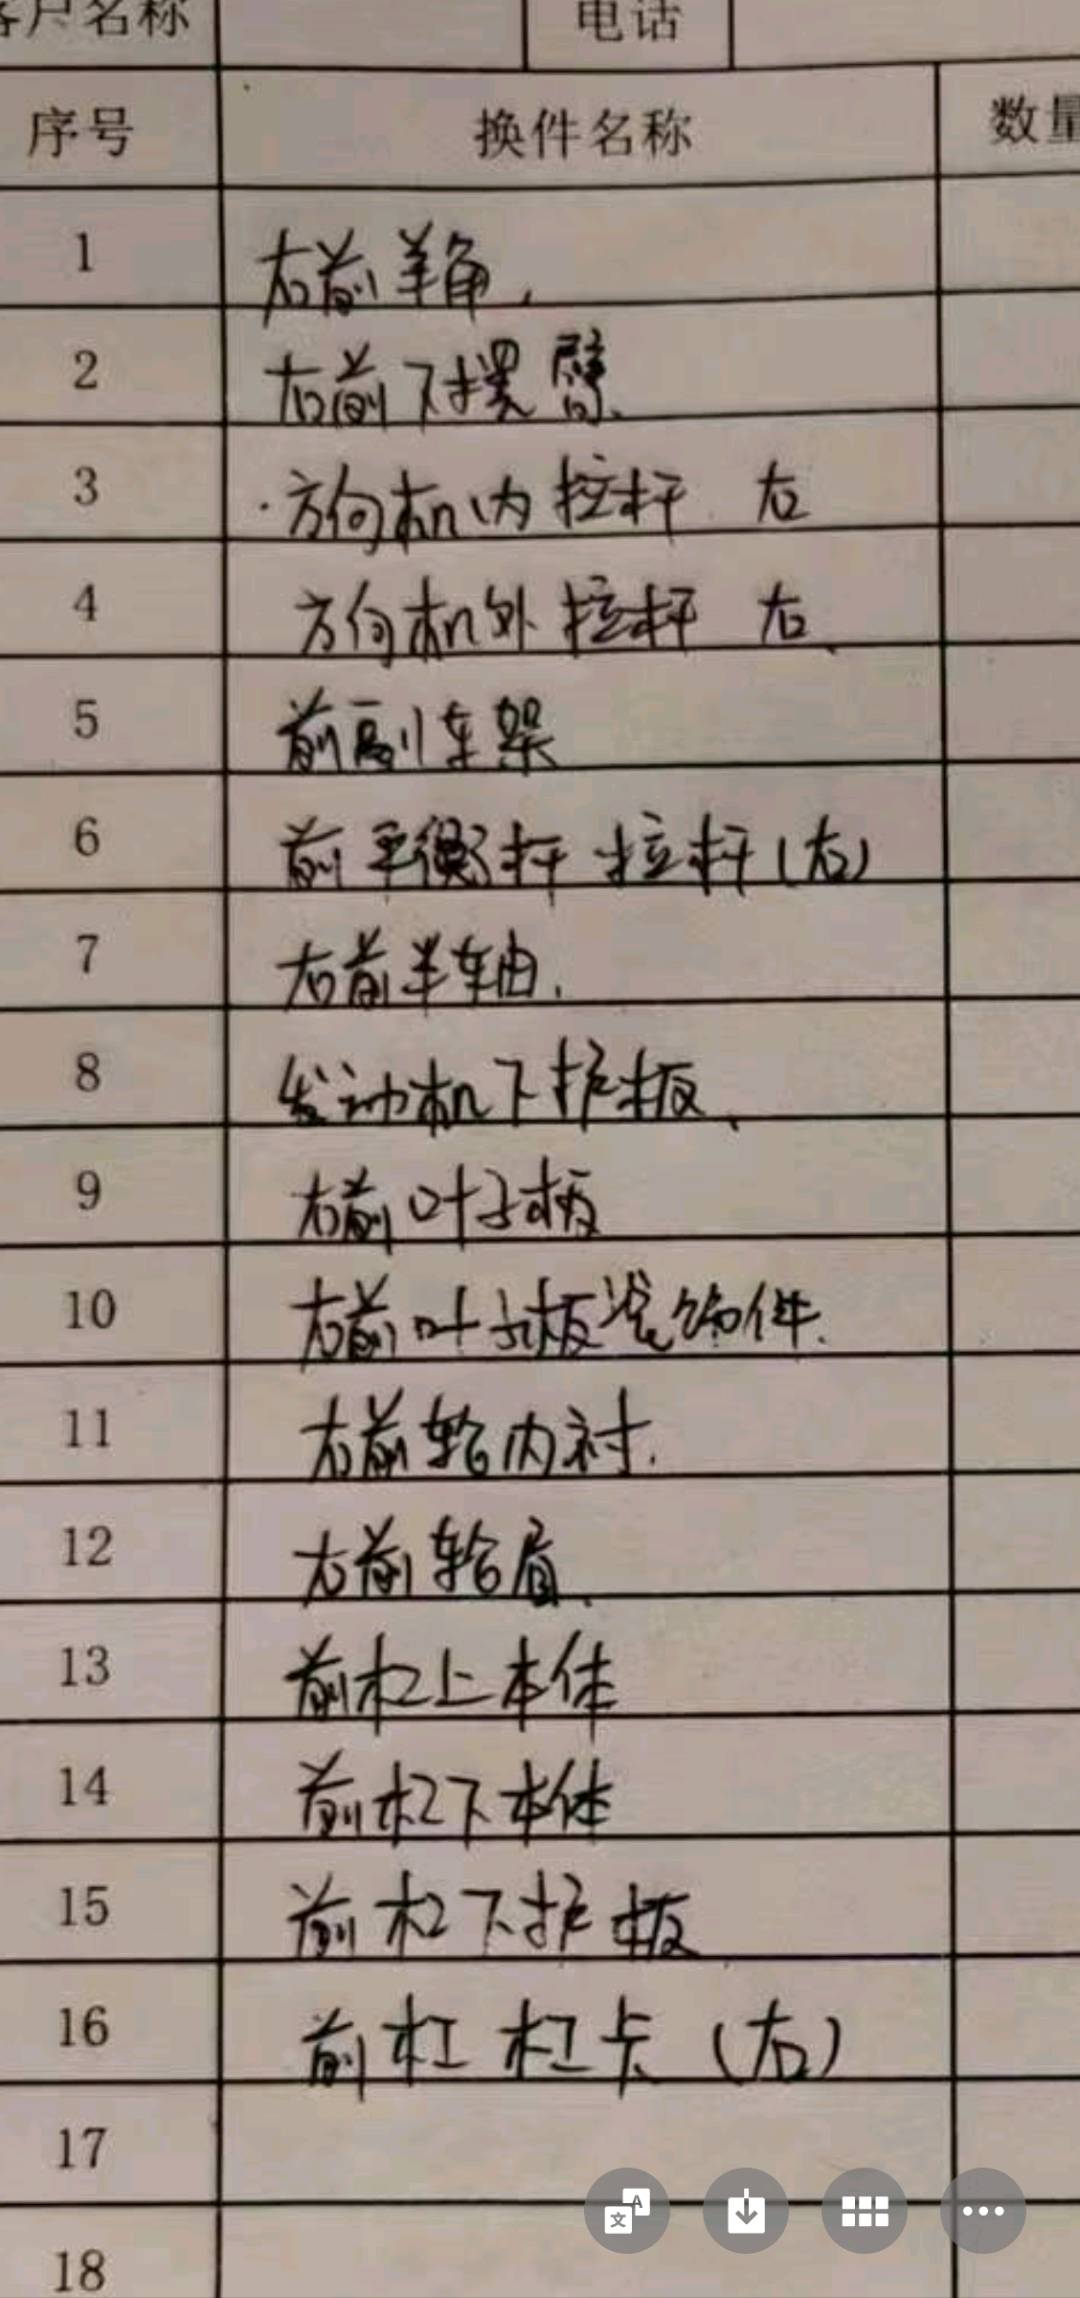 客户名称 电话
序号 换件名称 数量
1 右前羊角.
2 右前下摆臂.
3 方向机内拉杆 右
4 方向机外拉杆 右
5 前副车架
6 前平衡杆拉杆(右)
7 右前半轴.
8 发动机下护板
9 右前叶子板
10 右前叶子板装饰件.
11 右前轮内衬.
12 右前轮眉
13 前杠上本体
14 前杠下本体
15 前杠下护板
16 前杠杠卡(右)
17
18